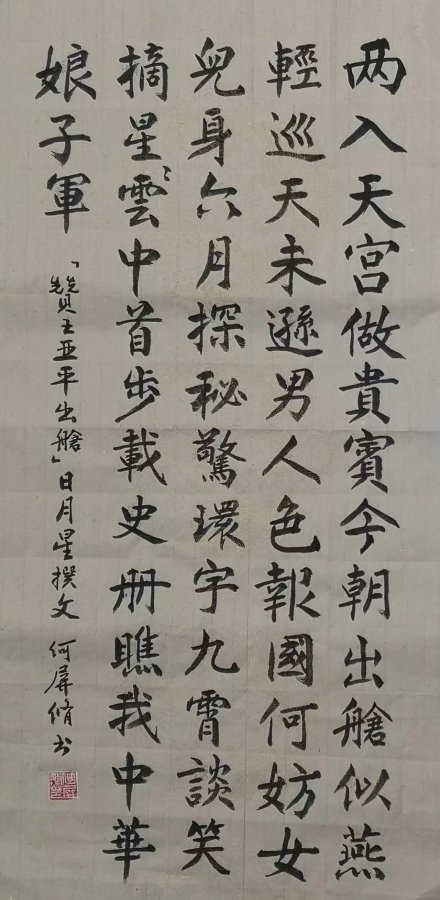 两入天宫做貴賓今朝出艙似燕
輕巡天未遜男人色報國何妨女
兒身六月探秘驚環宇九霄談笑
摘星雲〻中首步載史册瞧我中華
娘子軍
「贊王亚平出艙」日月星撰文 何屏脩书